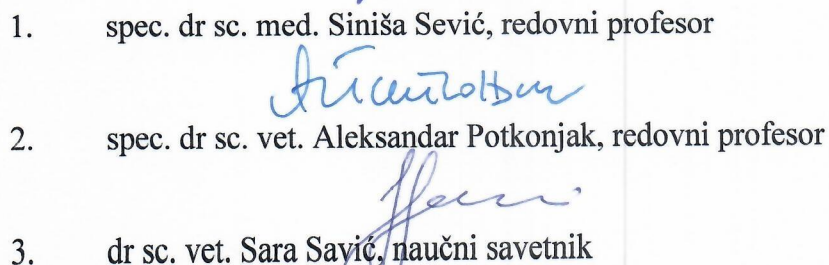 1. spec. dr sc. med. Siniša Sević, redovni profesor
2. spec. dr sc. vet. Aleksandar Potkonjak, redovni profesor
3. dr sc. vet. Sara Savić, naučni savetnik